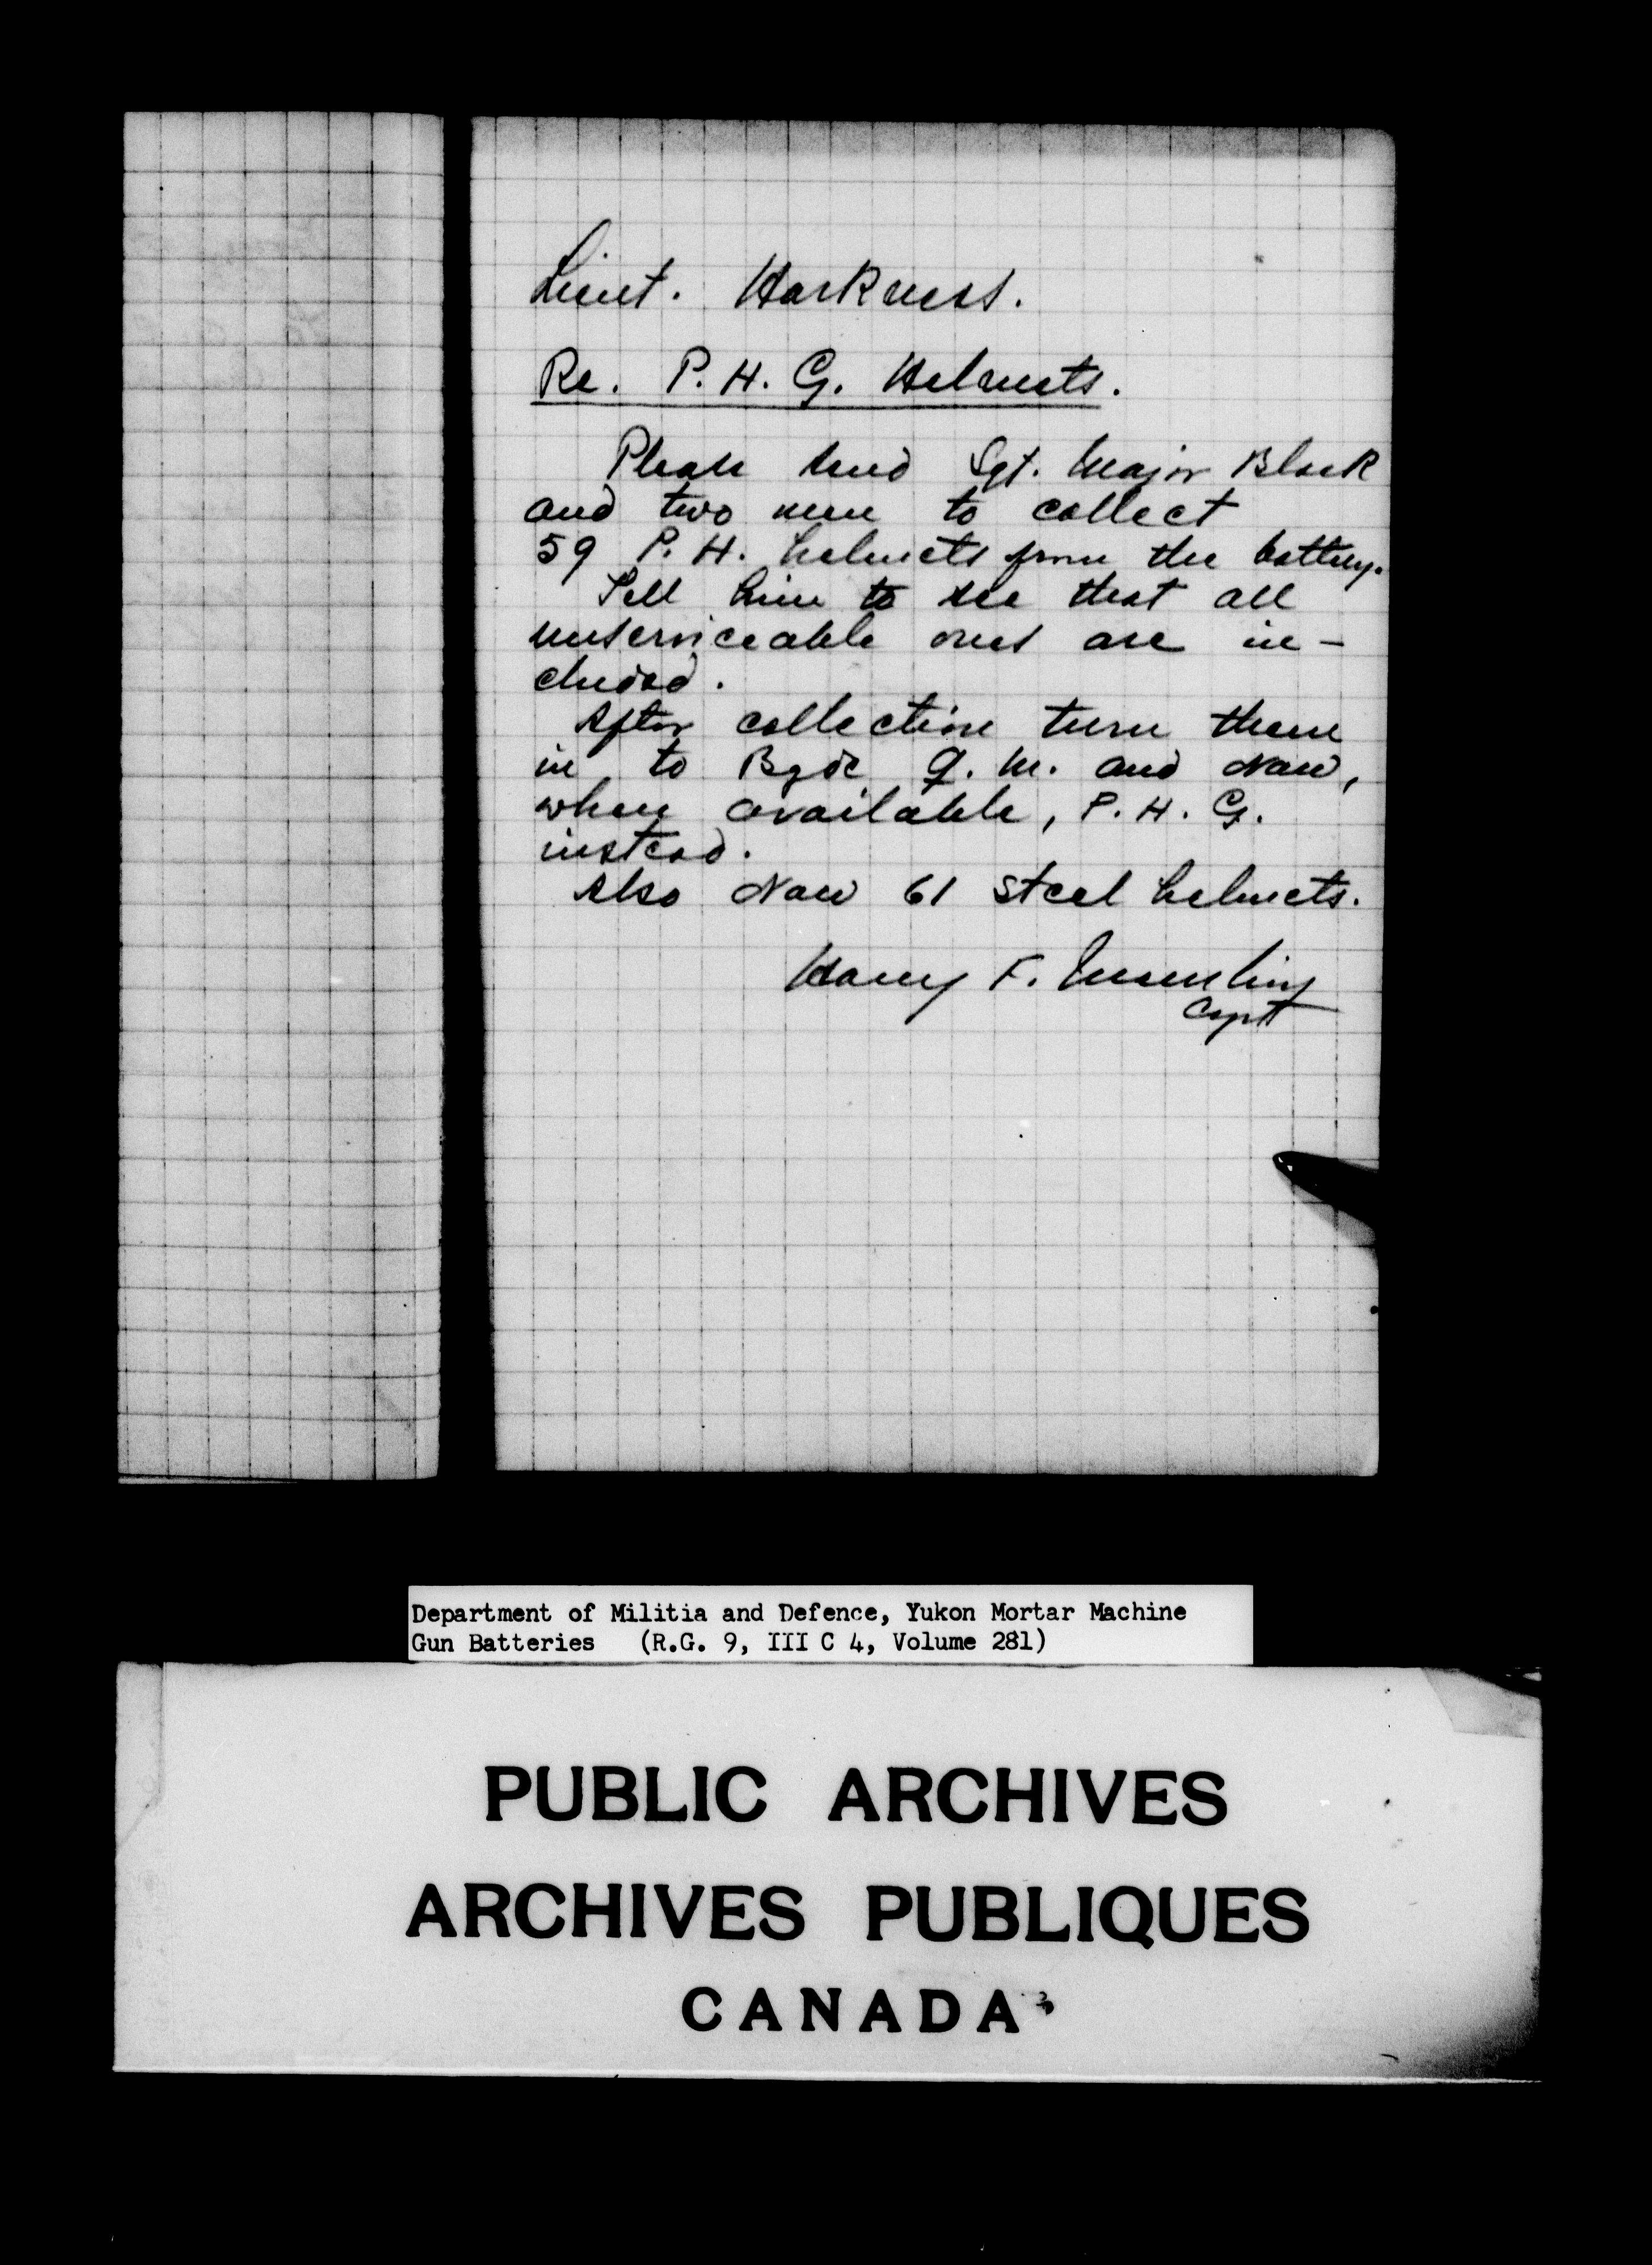 Lieut. Harkness.
Re. P. H. G. Helmets.
Please send Sgt. Major Black
and two men to collect
59 P. H. helmets from the battery.
Tell him to see that all
unserviceable ones are in-
cluded.
After collection turn them
in to Bgde Q. M. and draw,
when available, P. H. G.
instead.
Also draw 61 steel helmets.
Harry F.
Capt
Department of Militia and Defence, Yukon Mortar Machine
Gun Batteries (R.G. 9, III C 4, Volume 281)
PUBLIC ARCHIVES
ARCHIVES PUBLIQUES
CANADA